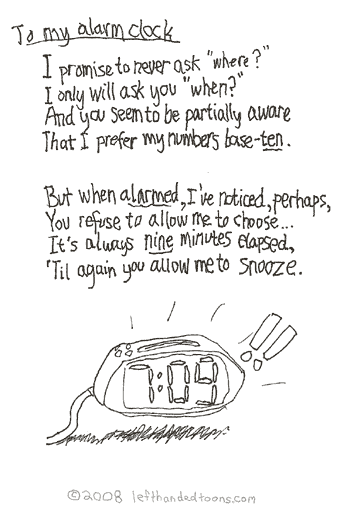 To my alarm clock
I promise to never ask "where?"
I only will ask you "when?"
And you seem to be partially aware
That I prefer my numbers base-ten.
But when alarmed, I've noticed, perhaps,
You refuse to allow me to choose...
It's always nine minutes elapsed,
'Til again you allow me to snooze.
7:09
!!
©2008 lefthandedtoons.com